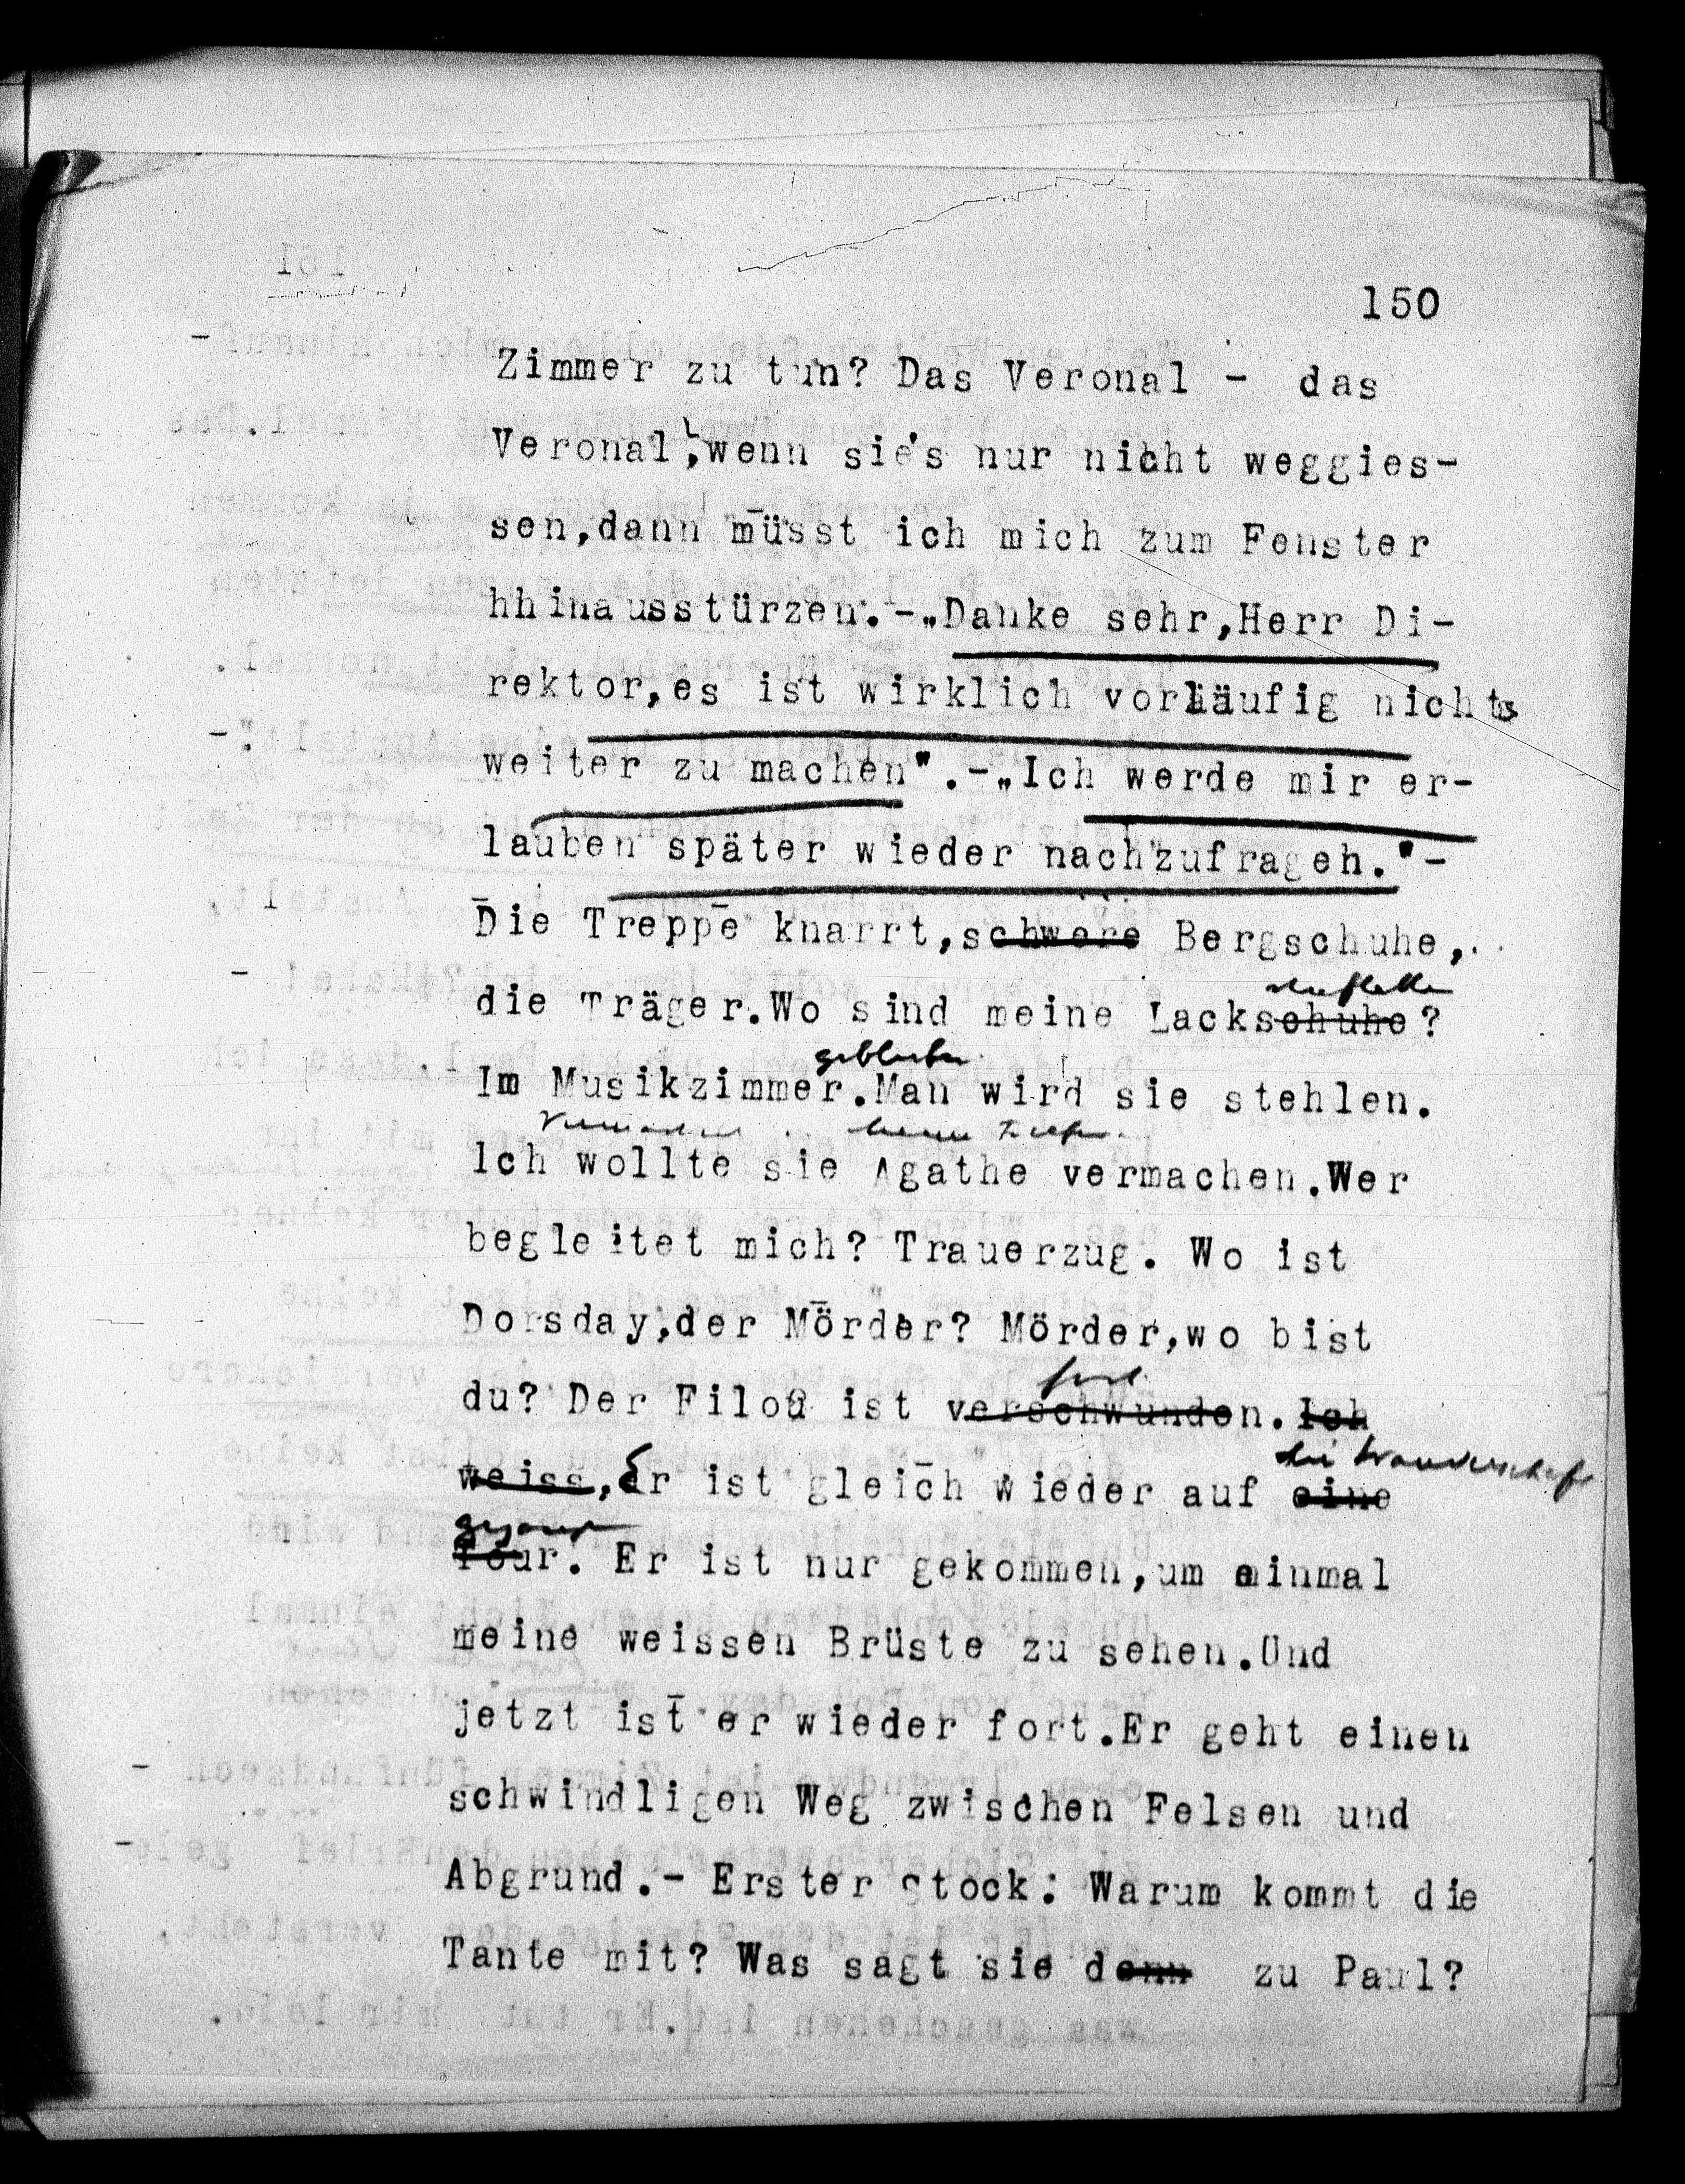 150
Zimmer zu tun? Das Veronal - das
Veronal, wenn sie's nur nicht weggies-
sen,dann müsst ich mich zum Fenster
hhinausstürzen.-„Danke sehr,Herr Di-
rektor,es ist wirklich vorläufig nichts
weiter zu machen".-„Ich werde mir er-
lauben später wieder nachzufrageh."-
Die Treppe knarrt,schwere Bergschuhe,
die Träger.Wo sind meine Lackschuhe?
geblieben
Im Musikzimmer.Man wird sie stehlen.
Ich wollte sie Agathe vermachen.Wer
begleitet mich? Trauerzug. Wo ist
Dorsday,der Mörder? Mörder,wo bist
fort
du? Der Filou ist verschwunden. Ich
die Wanderschaft
weiss,Er ist gleich wieder auf eine
gegangen
Tour. Er ist nur gekommen,um einmal
meine weissen Brüste zu sehen.Und
jetzt ist er wieder fort.Er geht einen
schwindligen Weg zwischen Felsen und
Abgrund.- Erster Stock: Warum kommt die
Tante mit? Was sagt sie denn zu Paul?